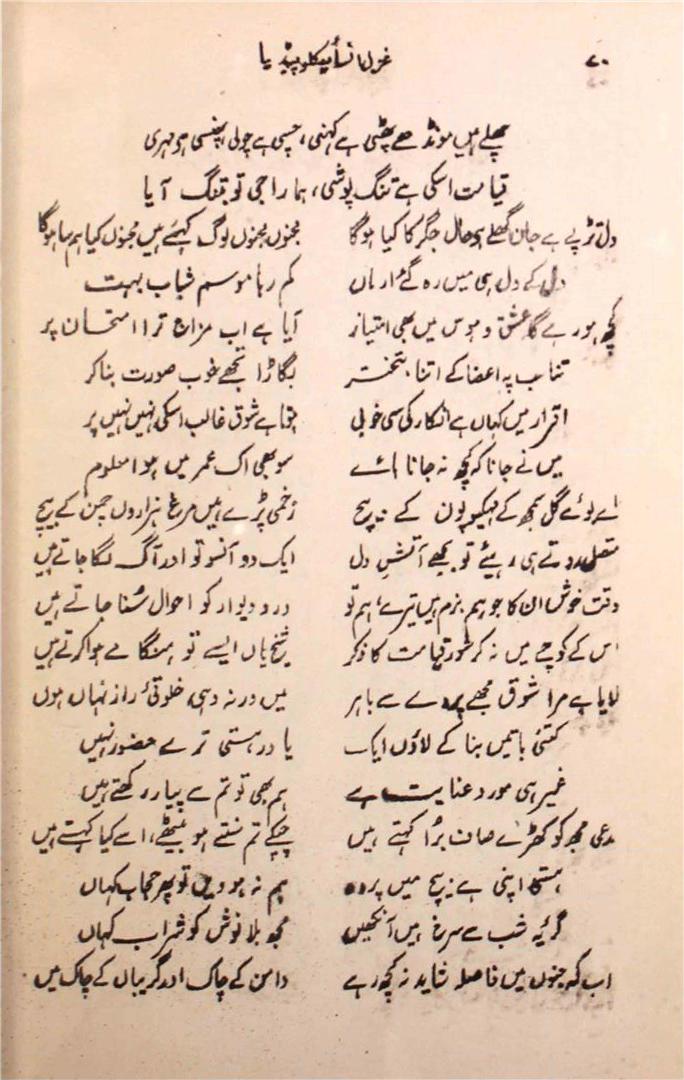 ۷۰ غزل انسائیکلوپیڈیا
چھلے ہیں مونڈھے پھٹی ہے کہنی، چسپی ہے چولی، پھنسی ہے مہری
قیامت اسکی ہے تنگ پوشی، ہمارا جی تو بتنگ آیا
دل تڑپے ہے جان گھلے ہے حال جگر کا کیا ہوگا مجنوں مجنوں لوگ کہئے ہیں مجنوں کیا ہم سا ہوگا
دل کے دل ہی میں رہ گئے ارماں کم رہا موسم شباب بہت
کچھ ہو رہے گا عشق و ہوس میں بھی امتیاز آیا ہے اب مزاج ترا امتحان پر
تناسب پہ اعضا کے اتنا تبختر بگاڑا تجھے خوب صورت بنا کر
اقرار میں کہاں ہے انکار کی سی خوبی ہوتا ہے شوق غالب اسکی نہیں نہیں پر
میں نے جانا کہ کچھ نہ جانا ہائے سو بھی اک عمر میں ہوا معلوم
اے بوئے گل سمجھ کے مہکیو پون کے بیچ زخمی پڑے ہیں مرغ ہزاروں چمن کے بیچ
متصل روتے ہی رہیئے تو بجھے آتش دل ایک دو آنسو تو اور آگ لگا جاتے ہیں
وقت خوش ان کا جو ہم بزم ہیں تیرے، ہم تو در و دیوار کو احوال سنا جاتے ہیں
اس کے کوچے میں نہ کر شور قیامت کا ذکر شیخ یاں ایسے تو ہنگامے ہوا کرتے ہیں
لایا ہے مرا شوق مجھے پردے سے باہر میں ورنہ وہی خلوتیٔ راز نہاں ہوں
کتنی باتیں بنا کے لاؤں ایک یاد رہتی ترے حضور نہیں
غیر ہی مورد عنایت ہے ہم بھی تو تم سے پیار رکھتے ہیں
مدعی مجھ کو کھڑے صاف برا کہتے ہیں چپکے تم سنتے ہو بیٹھے، اسے کیا کہتے ہیں
ہستی اپنی ہے بیچ میں پردہ ہم نہ ہوویں تو پھر حجاب کہاں
گریہ شب سے سرخ ہیں آنکھیں مجھ بلا نوش کو شراب کہاں
اب کہ جنوں میں فاصلہ شاید نہ کچھ رہے دامن کے چاک اور گریباں کے چاک میں